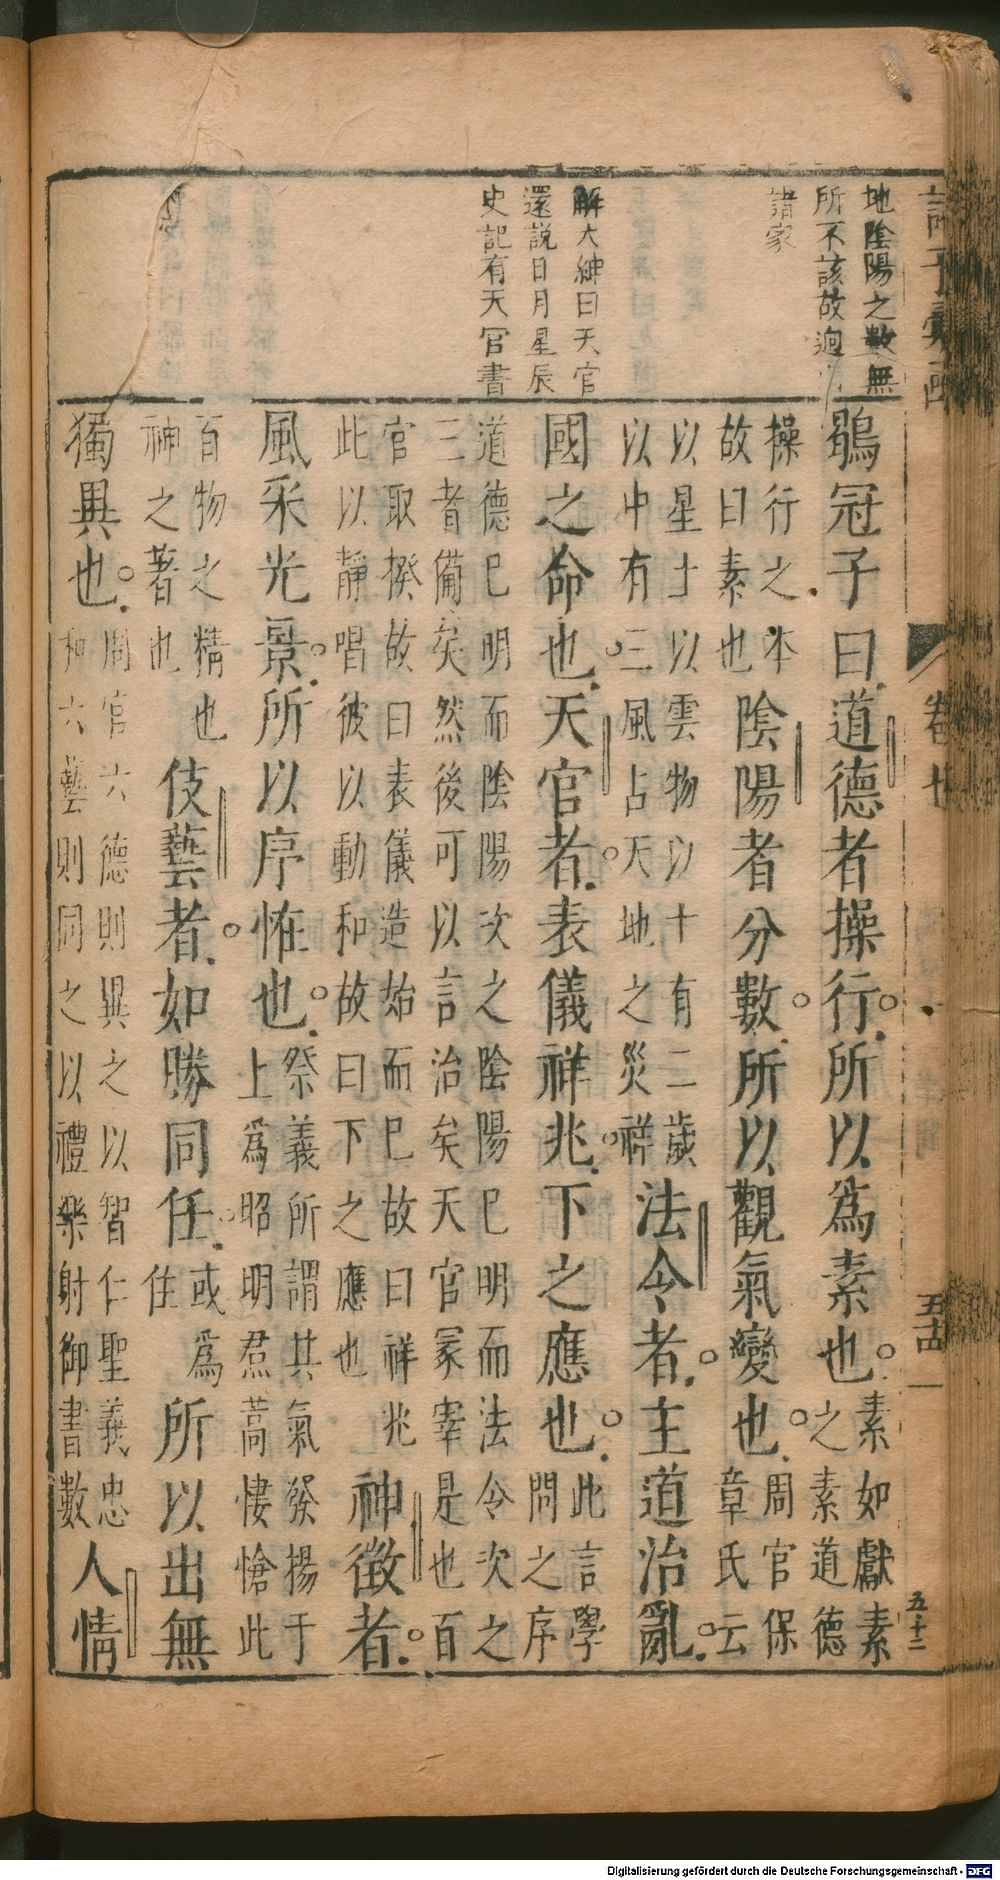 地陰陽之數無
所不該故迥
諸家
解大紳曰天官
還說日月星辰
史記有天官書
鶡冠子曰道德者操行所以爲素也素如獻素之素道德
操行之本故曰素也陰陽者分數所以觀氣變也周官保章氏云
以星土以雲物以十有二歲以中有三風占天地之災祥法令者主道治亂
國之命也天官者表儀祥兆下之應也此言學問之序
道德已明而陰陽次之陰陽已明而法令次之三者備矣然後可以言治矣天官冢宰是也百
官取揆故曰表儀造始而已故曰祥兆此以靜唱彼以動和故曰下之應也神徵者
風采光景所以序恠也祭義所謂其氣發揚于上爲昭明焄蒿悽愴此
百物之精也神之著也伎藝者如勝同任或爲住所以出無
獨異也周官六德則異之以智仁聖義忠和六藝則同之以禮樂射御書數人情
卷
五十二
Digitalisierung gefördert durch die Deutsche Forschungsgemeinschaft - DFG